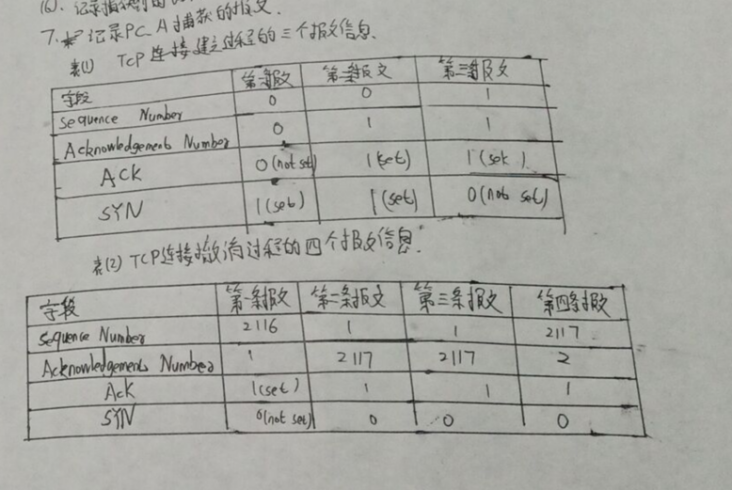 (6). 记录捕获的报文.
7. 记录PC A捕获的报文.
表(1) TCP连接建立过程的三个报文信息.
字段 第一条报文 第二条报文 第三条报文
Sequence Number 0 0 1
Acknowledgement Number 0 1 1
ACK 0(not set) 1(set) 1(set)
SYN 1(set) 1(set) 0(not set)
表(2) TCP连接撤消过程的四个报文信息.
字段 第一条报文 第二条报文 第三条报文 第四条报文
Sequence Number 2116 1 1 2117
Acknowledgement Number 1 2117 2117 2
Ack 1(set) 1 1 1
SYN 0(not set) 0 0 0